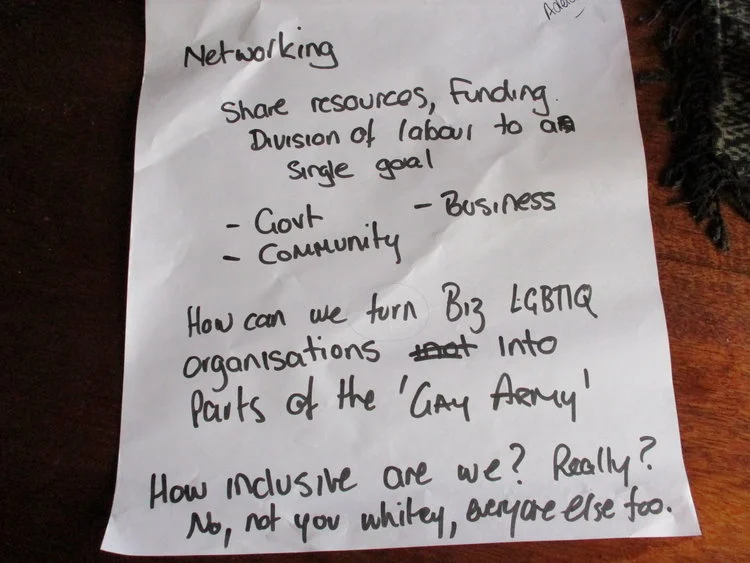 Networking
Share resources, Funding.
Division of labour to a
Single goal
- Govt - Business
- Community
How can we turn Biz LGBTIQ
organisations into
Parts of the 'GAY ARMY'
How inclusive are we? Really?
No, not you whitey, everyone else too.